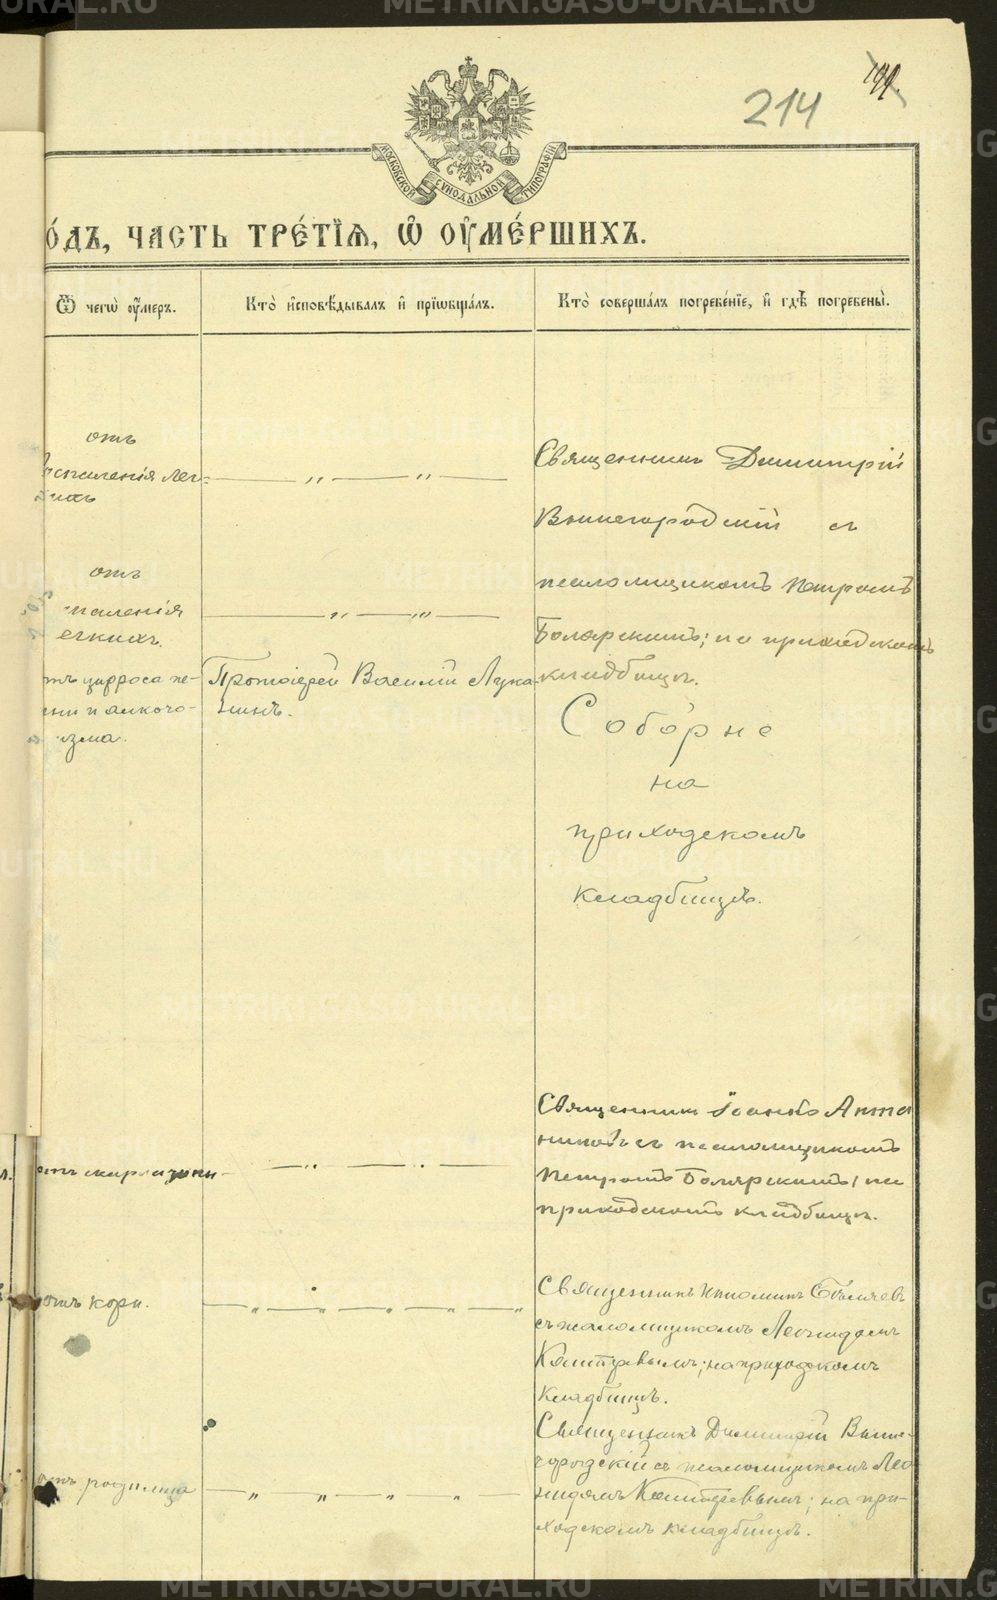 214
199.
МОСКОВСКОЙ СѴНОДАЛЬНОЙ ТИПОГРАФІИ
О́ДЪ, ЧАСТЬ ТРЕ́ТІѦ, Ѡ҆ ОУ҆МЕ́РШИХЪ.
Ѿ чегѡ̀ оу҆́мер.
Кто̀ и҆сповѣ́дывалъ и҆ прїѡбща́лъ.
Кто̀ соверша́лъ погребе́нїе, и҆ гдѣ̀ погребены̀.
отъ
воспаленія лег-
кихъ
— " — " —
Священникъ Димитрій
Вышегородскій съ
псаломщикомъ Петромъ
Боярскимъ; на приходскомъ
кладбищѣ.
отъ
паленія
егкихъ.
— " — " —
тъ цирроса пе-
ни и алкого-
изма.
Протоіерей Василій Лука-
нинъ.
Соборне
на
приходскомъ
кладбищѣ.
отъ скарлатины
— " — " —
Священникъ Іоаннъ
съ псаломщикомъ
Петромъ Боярскимъ, на
приходскомъ кладбищѣ.
отъ кори.
— " — " — " — " — "
Священникъ
съ псаломщикомъ Леонидомъ
на приходскомъ
кладбищѣ.
отъ родимца
— " — " — " — " —
Священникъ Димитрій Выше-
городскій съ псаломщикомъ Лео-
нидомъ на при-
ходскомъ кладбищѣ.
METRIKI.GASO-URAL.RU